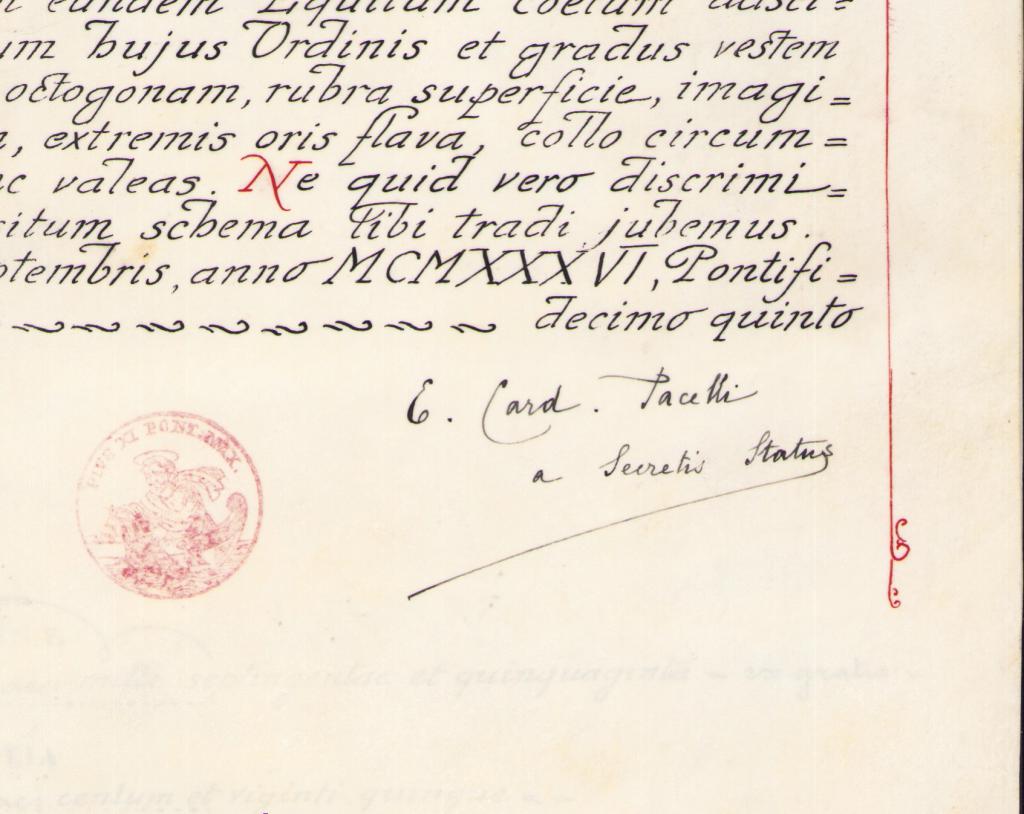 eundem Equitum coetum adsci=
um hujus Ordinis et gradus vestem
octogonam, rubra superficie, imagi=
a, extremis oris flava, collo circum=
c valeas. Ne quid vero discrimi=
situm schema tibi tradi jubemus.
ptembris, anno MCMXXXVI, Pontifi=
decimo quinto
E. Card. Pacelli
a Secretis Status
PIUS XI PONT. MAX.
mille septingentae et quinquaginta - ex gratia -
centum et viginti quinque - -